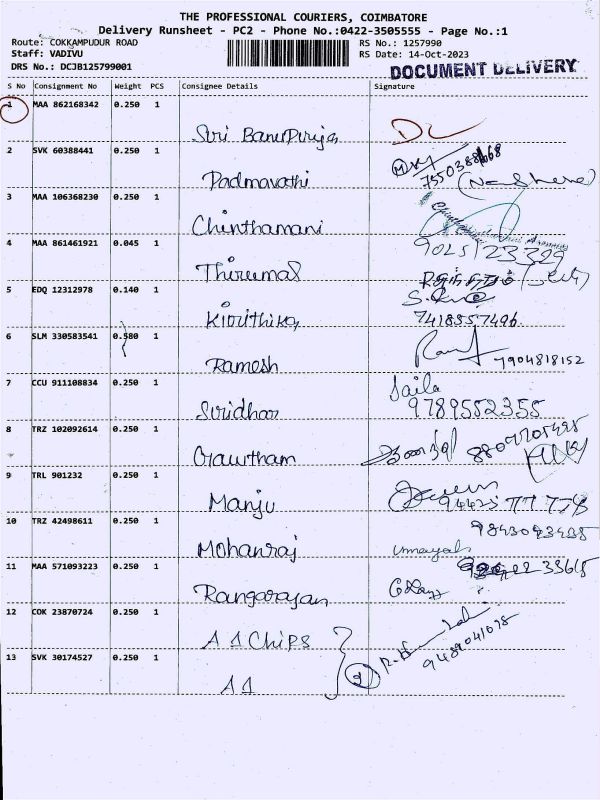 THE PROFESSIONAL COURIERS, COIMBATORE
Delivery Runsheet - PC2 - Phone No.:0422-3505555 - Page No.:1
Route: COKKAMPUDUR ROAD RS No.: 1257990
Staff: VADIVU RS Date: 14-Oct-2023
DRS No.: DCJB125799001 DOCUMENT DELIVERY
S No Consignment No Weight PCS Consignee Details Signature
1 MAA 862168342 0.250 1
Sri Banupiriya
2 SVK 60388441 0.250 1
Padmavathi
3 MAA 106368230 0.250 1
Chinthamani
4 MAA 861461921 0.045 1 9025123329
Thirumal
5 EDQ 12312978 0.140 1
Kirithika 7418557496
6 SLM 330583541 0.580 1
Ramesh 7904818152
7 CCU 911108834 0.250 1 Saila
Sridhar 9789552355
8 TRZ 102092614 0.250 1
Gawtham
9 TRL 901232 0.250 1
Manju
10 TRZ 42498611 0.250 1
Mohanraj
11 MAA 571093223 0.250 1
Rangarajan
12 COK 23870724 0.250 1
A 1 Chips
13 SVK 30174527 0.250 1
A1 2